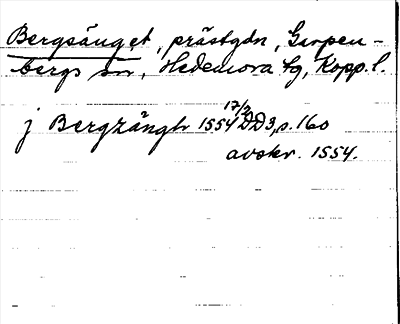 Bergsänget, prästgdn, Garpen-
bergs sn, Hedemora tg, Kopp. l.
j Bergzängh 1554 17/2 DD3, s. 160
avskr. 1554.